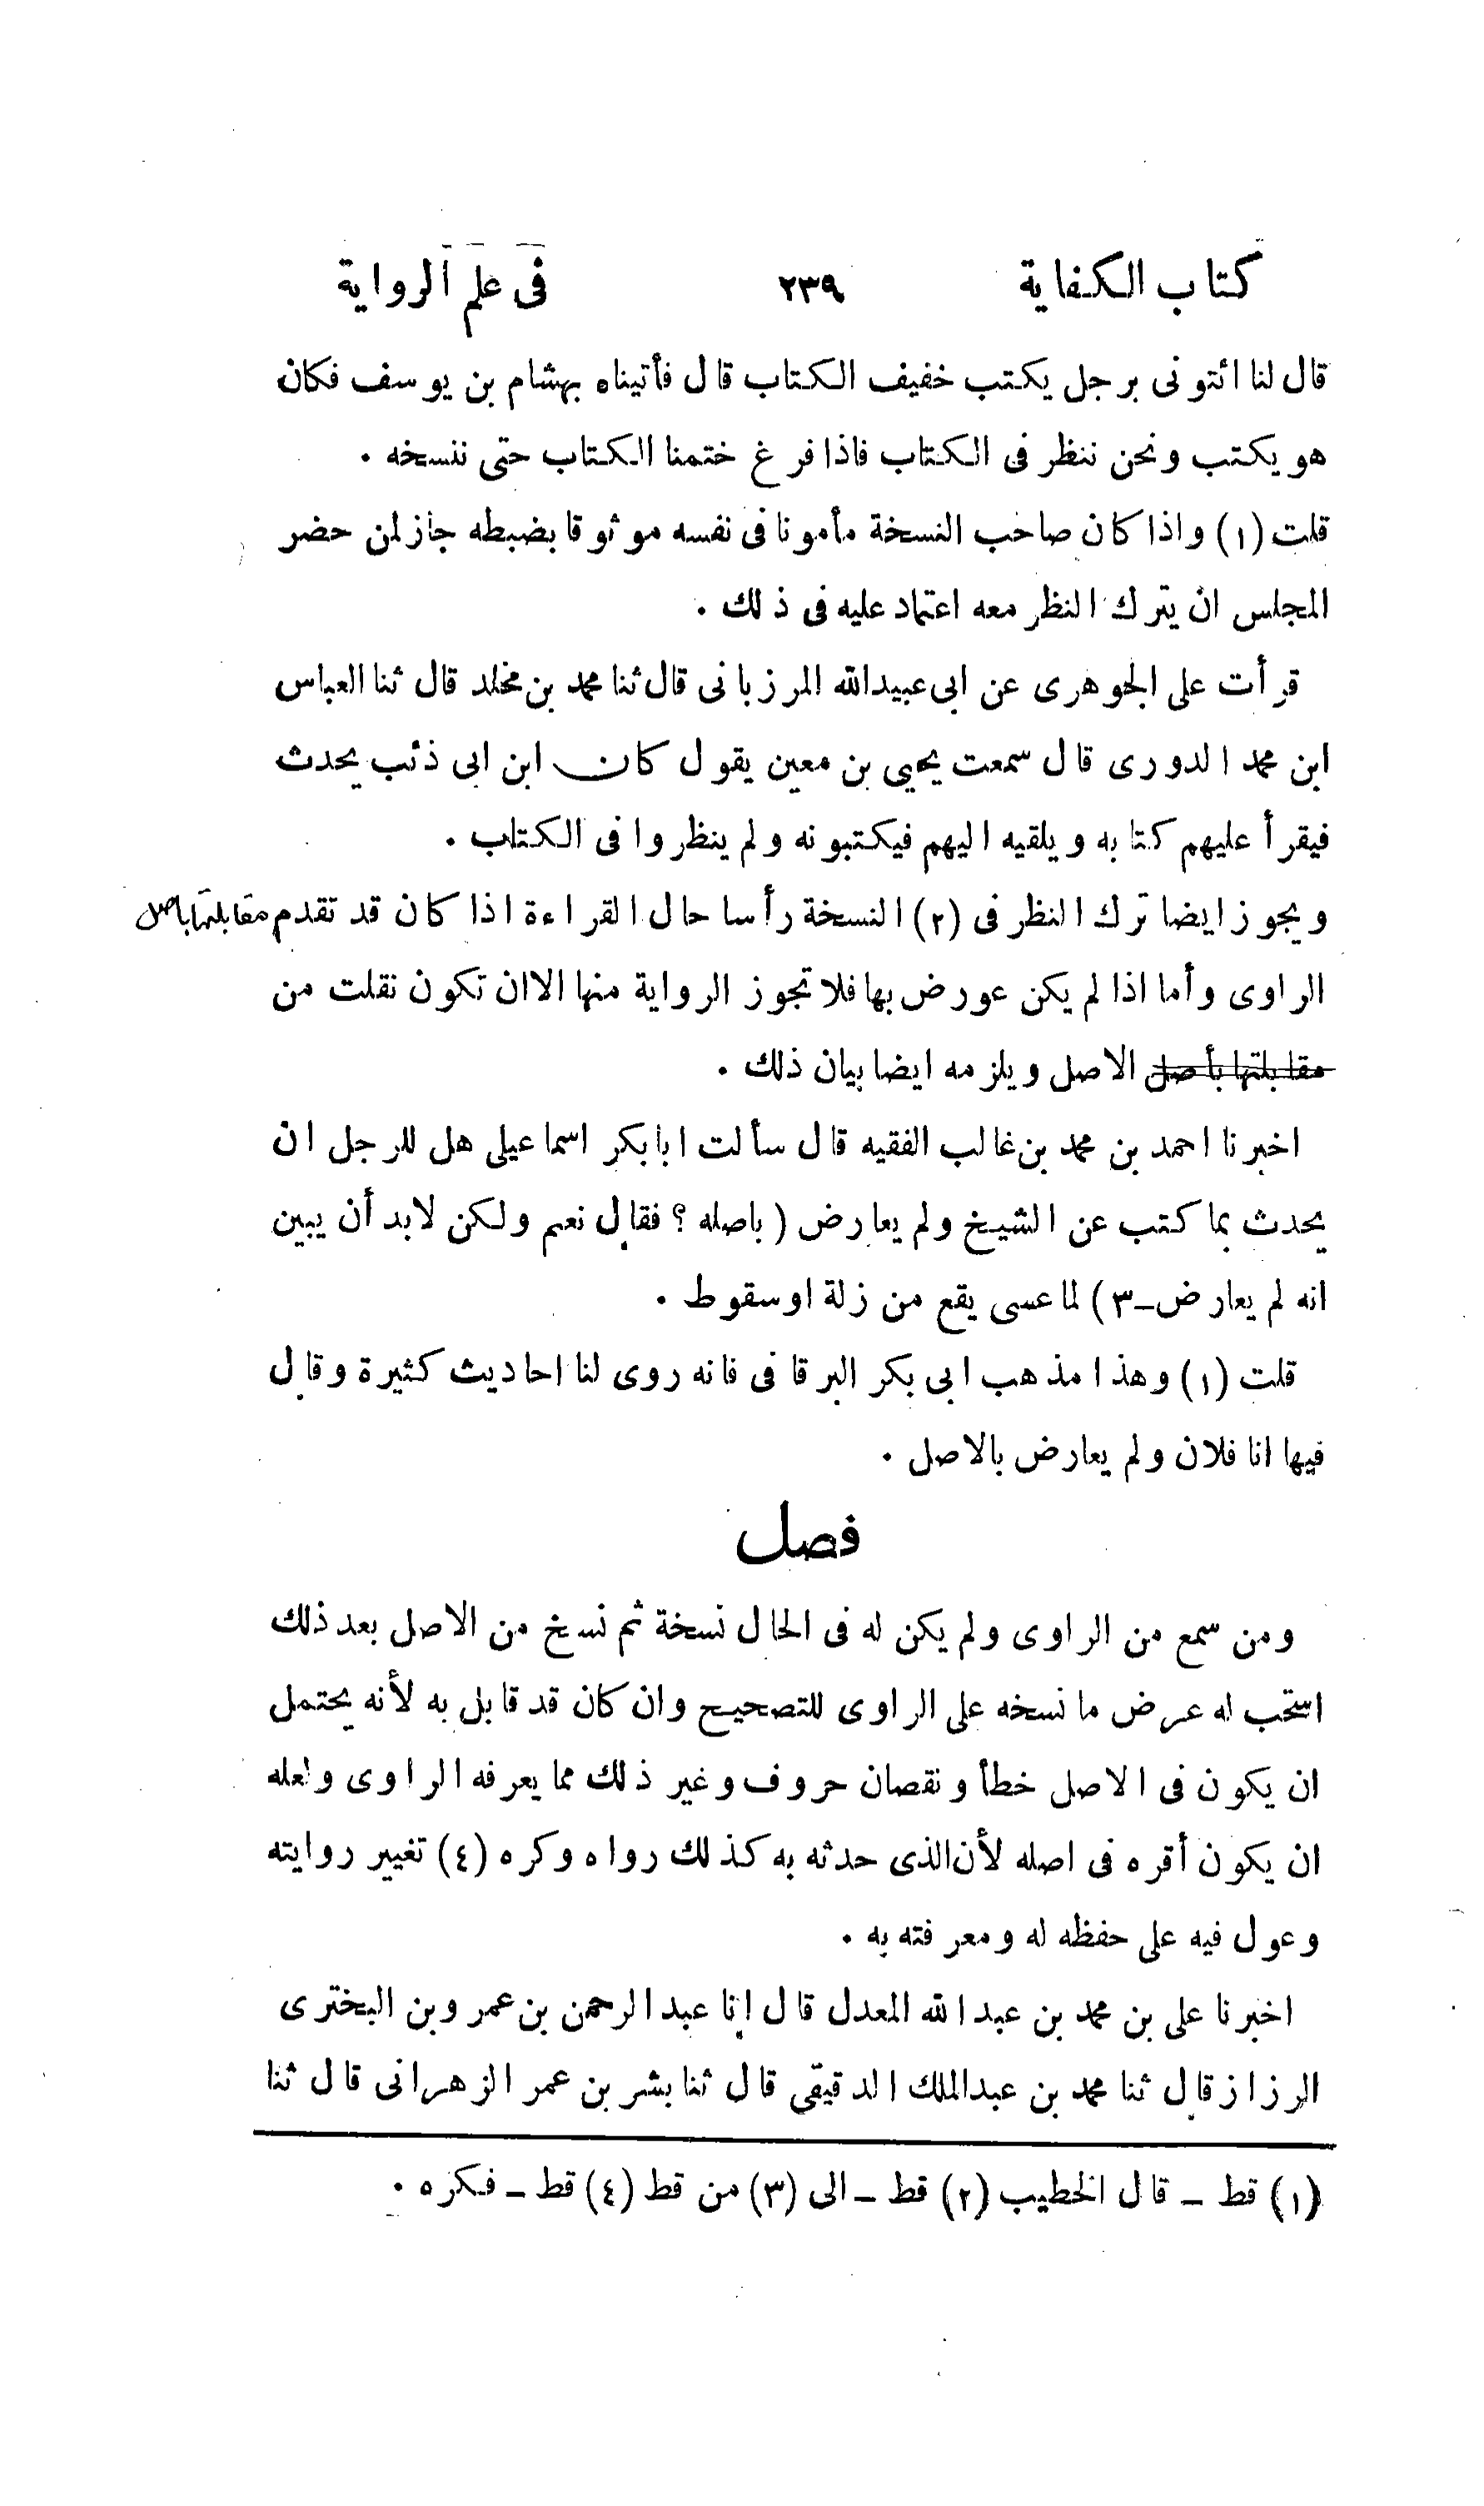 كتاب الكفاية ٢٣٩ فى علم الرواية
قال لنا ائتونى برجل يكتب خفيف الكتاب قال فأتيناه بهشام بن يوسف فكان
هو يكتب ونحن ننظر فى الكتاب فاذا فرغ ختمنا الكتاب حتى ننسخه .
قلت (١) واذا كان صاحب النسخة مأمونا فى نفسه موثوقا بضبطه جاز لمن حضر
المجلس ان يترك النظر معه اعتماد عليه فى ذلك .
قرأت على الجوهرى عن ابى عبيدالله المرزبانى قال ثنا محمد بن مخلد قال ثنا العباس
ابن محمد الدورى قال سمعت يحيى بن معين يقول كان ابن ابى ذئب يحدث
فيقرأ عليهم كتابه ويلقيه اليهم فيكتبونه ولم ينظروا فى الكتاب .
ويجوز ايضا ترك النظر فى (٢) النسخة رأسا حال القراءة اذا كان قد تقدم مقابلتها باصل
الراوى وأما اذا لم يكن عورض بها فلا تجوز الرواية منها الا ان تكون نقلت من
مقابلتها بأصل الاصل ويلزمه ايضا بيان ذلك .
اخبرنا احمد بن محمد بن غالب الفقيه قال سألت ابا بكر اسماعيلى هل للرجل ان
يحدث بما كتب عن الشيخ ولم يعارض (باصله ؟ فقال نعم ولكن لابد أن يبين
انه لم يعارض-٣) لما عسى يقع من زلة او سقوط .
قلت (١) وهذا مذهب ابى بكر البرقانى فانه روى لنا احاديث كثيرة وقال
فيها انا فلان ولم يعارض بالاصل .
فصل
ومن سمع من الراوى ولم يكن له فى الحال نسخة ثم نسخ من الاصل بعد ذلك
استحب له عرض ما نسخه على الراوى للتصحيح وان كان قد قابل به لأنه يحتمل
ان يكون فى الاصل خطأ ونقصان حروف وغير ذلك مما يعرفه الراوى ولعله
ان يكون أقره فى اصله لأن الذى حدثه به كذلك رواه وكره (٤) تغيير روايته
وعول فيه على حفظه له ومعرفته به .
اخبرنا على بن محمد بن عبد الله المعدل قال إنا عبد الرحمن بن عمر وبن البخترى
الرزاز قال ثنا محمد بن عبدالملك الدقيقى قال ثنا بشر بن عمر الزهرانى قال ثنا
(١) قط - قال الخطيب (٢) قط - الى (٣) من قط (٤) قط - فكره .